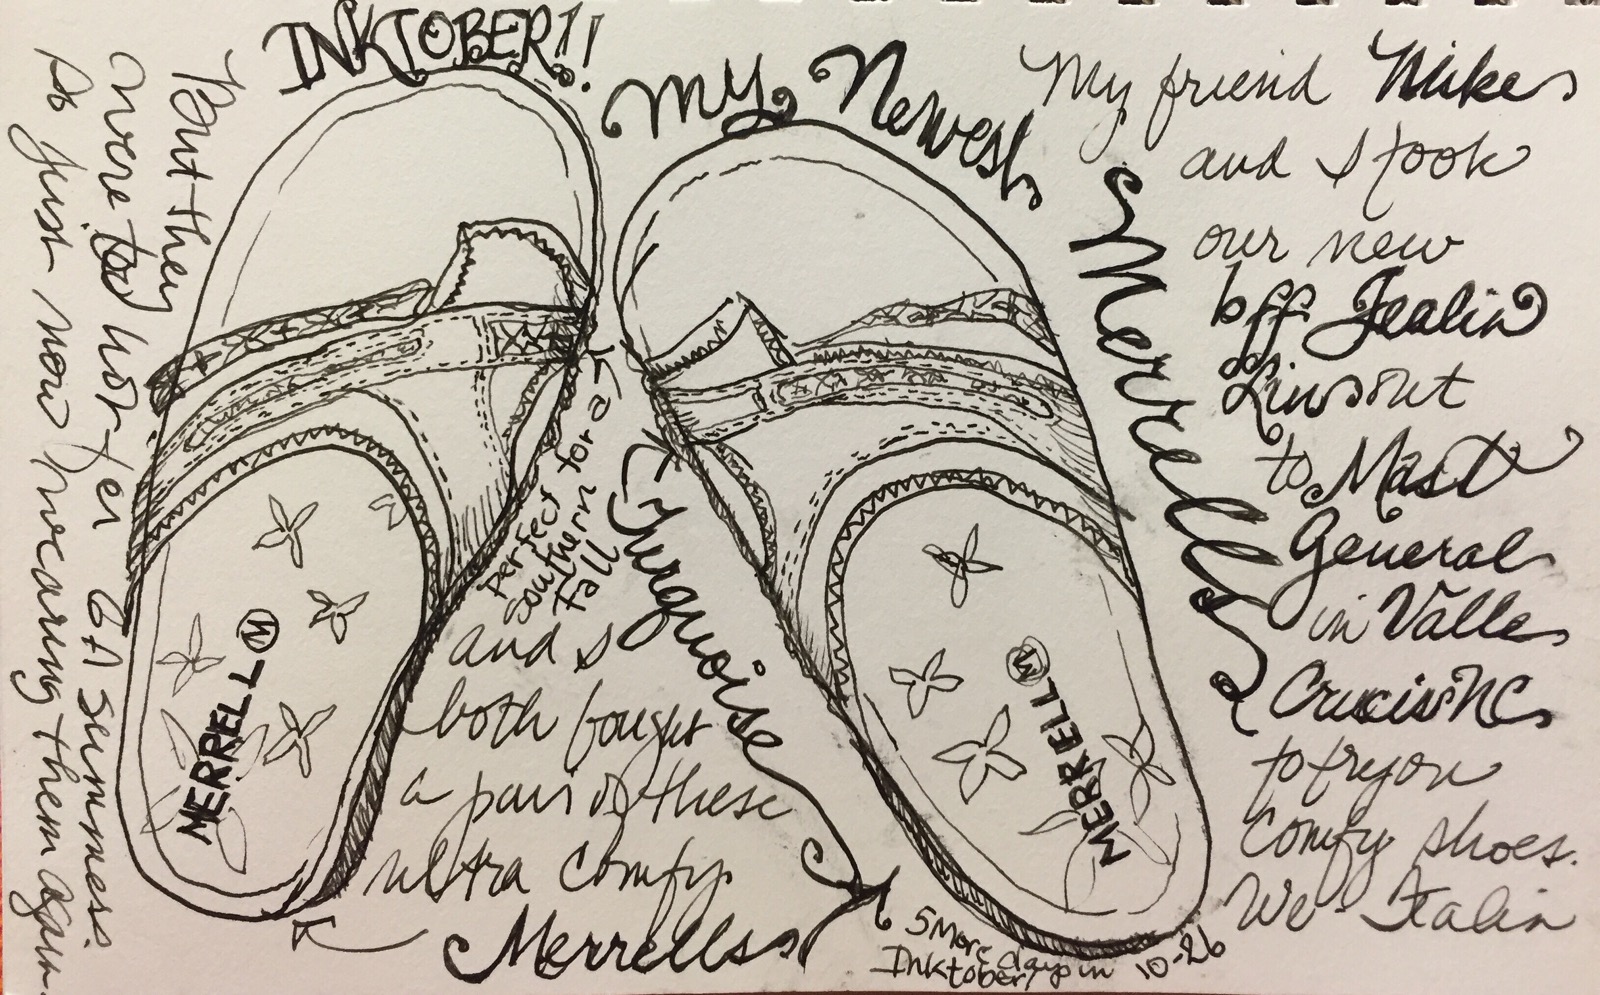 INKTOBER!!
My Newest
Merrells
My friend Mike
and I took
our new
bff
to Mast
General
in Valle
Crucis NC
to try on
comfy shoes.
We
and I
both bought
a pair of these
ultra comfy
Merrells
But they
were too hot for GA summers.
So just now wearing them again.
perfect
for a
southern
Fall
Turquoise
MERRELL M
MERRELL M
5 more days in
Inktober!
10-26